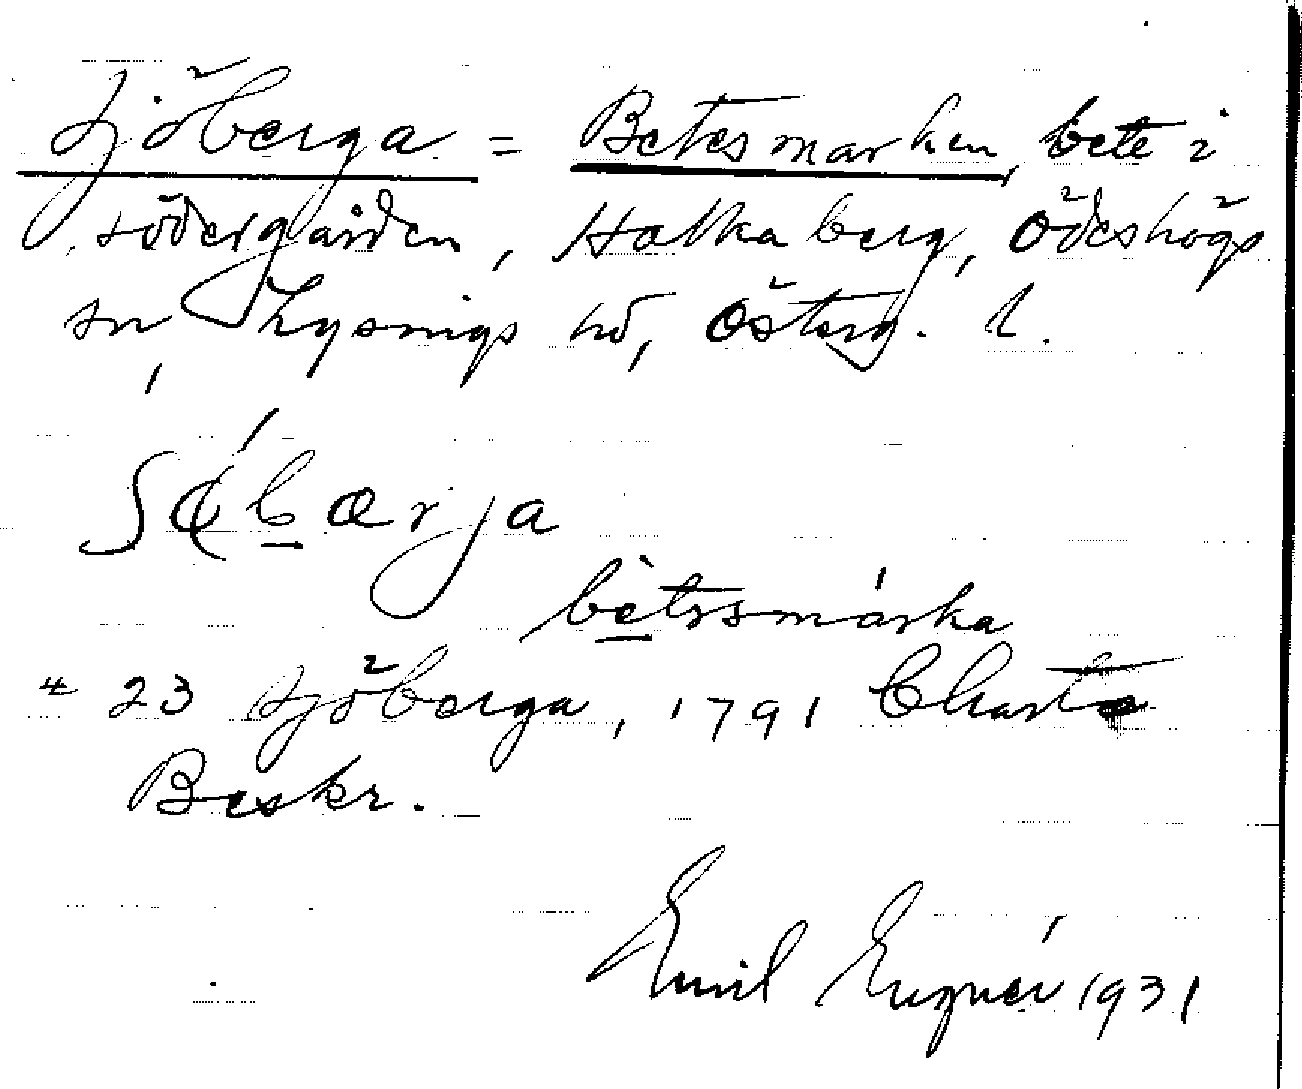 Sjöberga = Betesmarken, bete i
Södergården, Holkaberg, Ödeshögs
sn, Lysings hd, Österg. l.
betesmarka
23 Sjöberga, 1791 Charta
Beskr.
Emil 1931